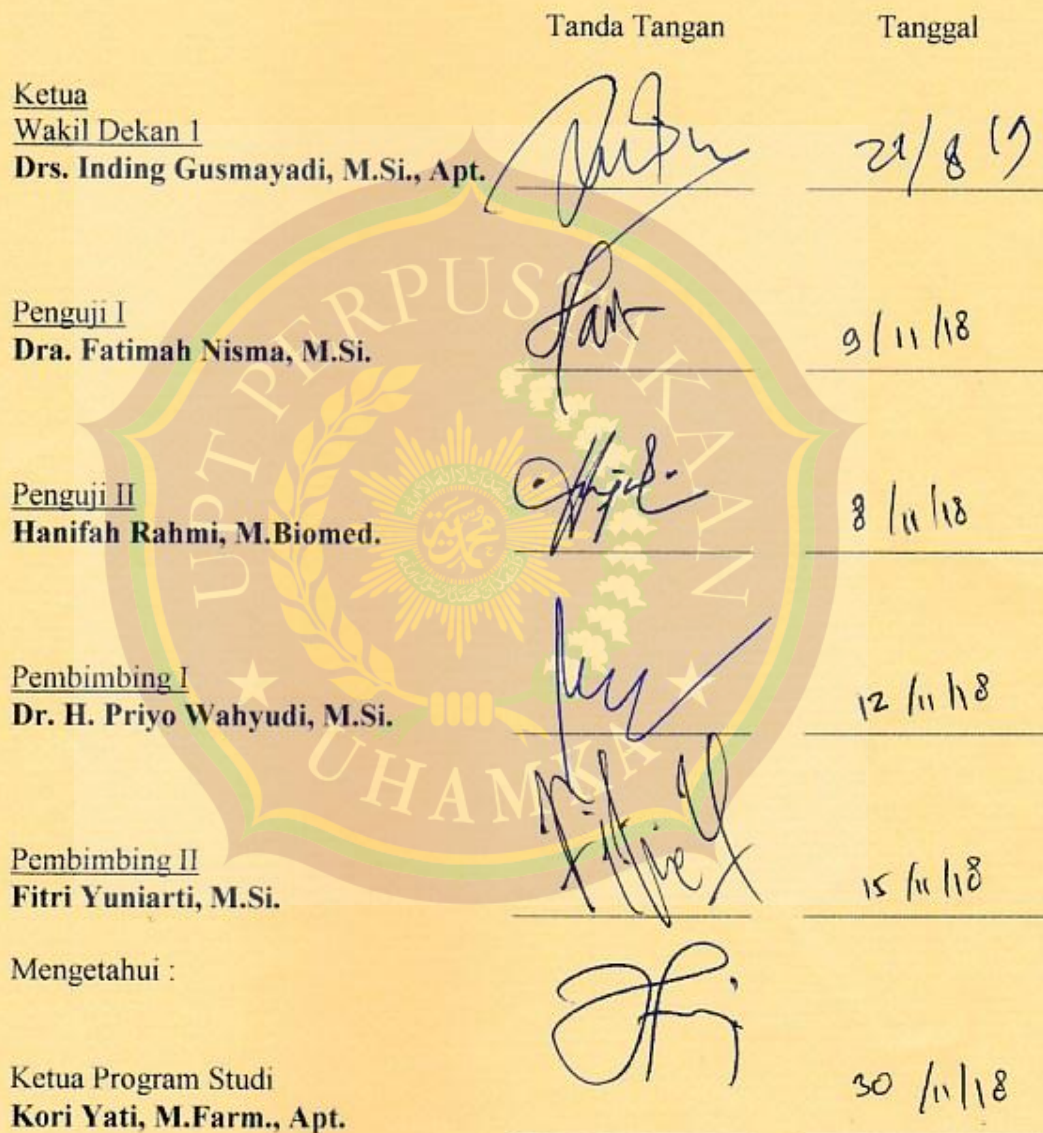 Tanda Tangan Tanggal
Ketua
Wakil Dekan 1
Drs. Inding Gusmayadi, M.Si., Apt.
Penguji I
Dra. Fatimah Nisma, M.Si.
9/11/18
Penguji II
Hanifah Rahmi, M.Biomed.
8/11/18
Pembimbing I
Dr. H. Priyo Wahyudi, M.Si.
12/11/18
Pembimbing II
Fitri Yuniarti, M.Si.
15/11/18
Mengetahui :
Ketua Program Studi
Kori Yati, M.Farm., Apt.
30/11/18
UPT PERPUSTAKAAN
UHAMKA